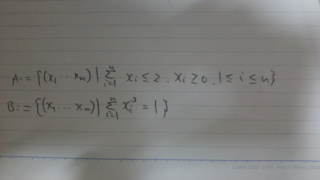 A:= {(x₁ ⋯ xₙ) | ∑ᵢ₌₁ⁿ xᵢ ≤ 2, xᵢ ≥ 0, 1 ≤ i ≤ n}
B:= {(x₁ ⋯ xₙ) | ∑ᵢ₌₁ⁿ xᵢ³ = 1}